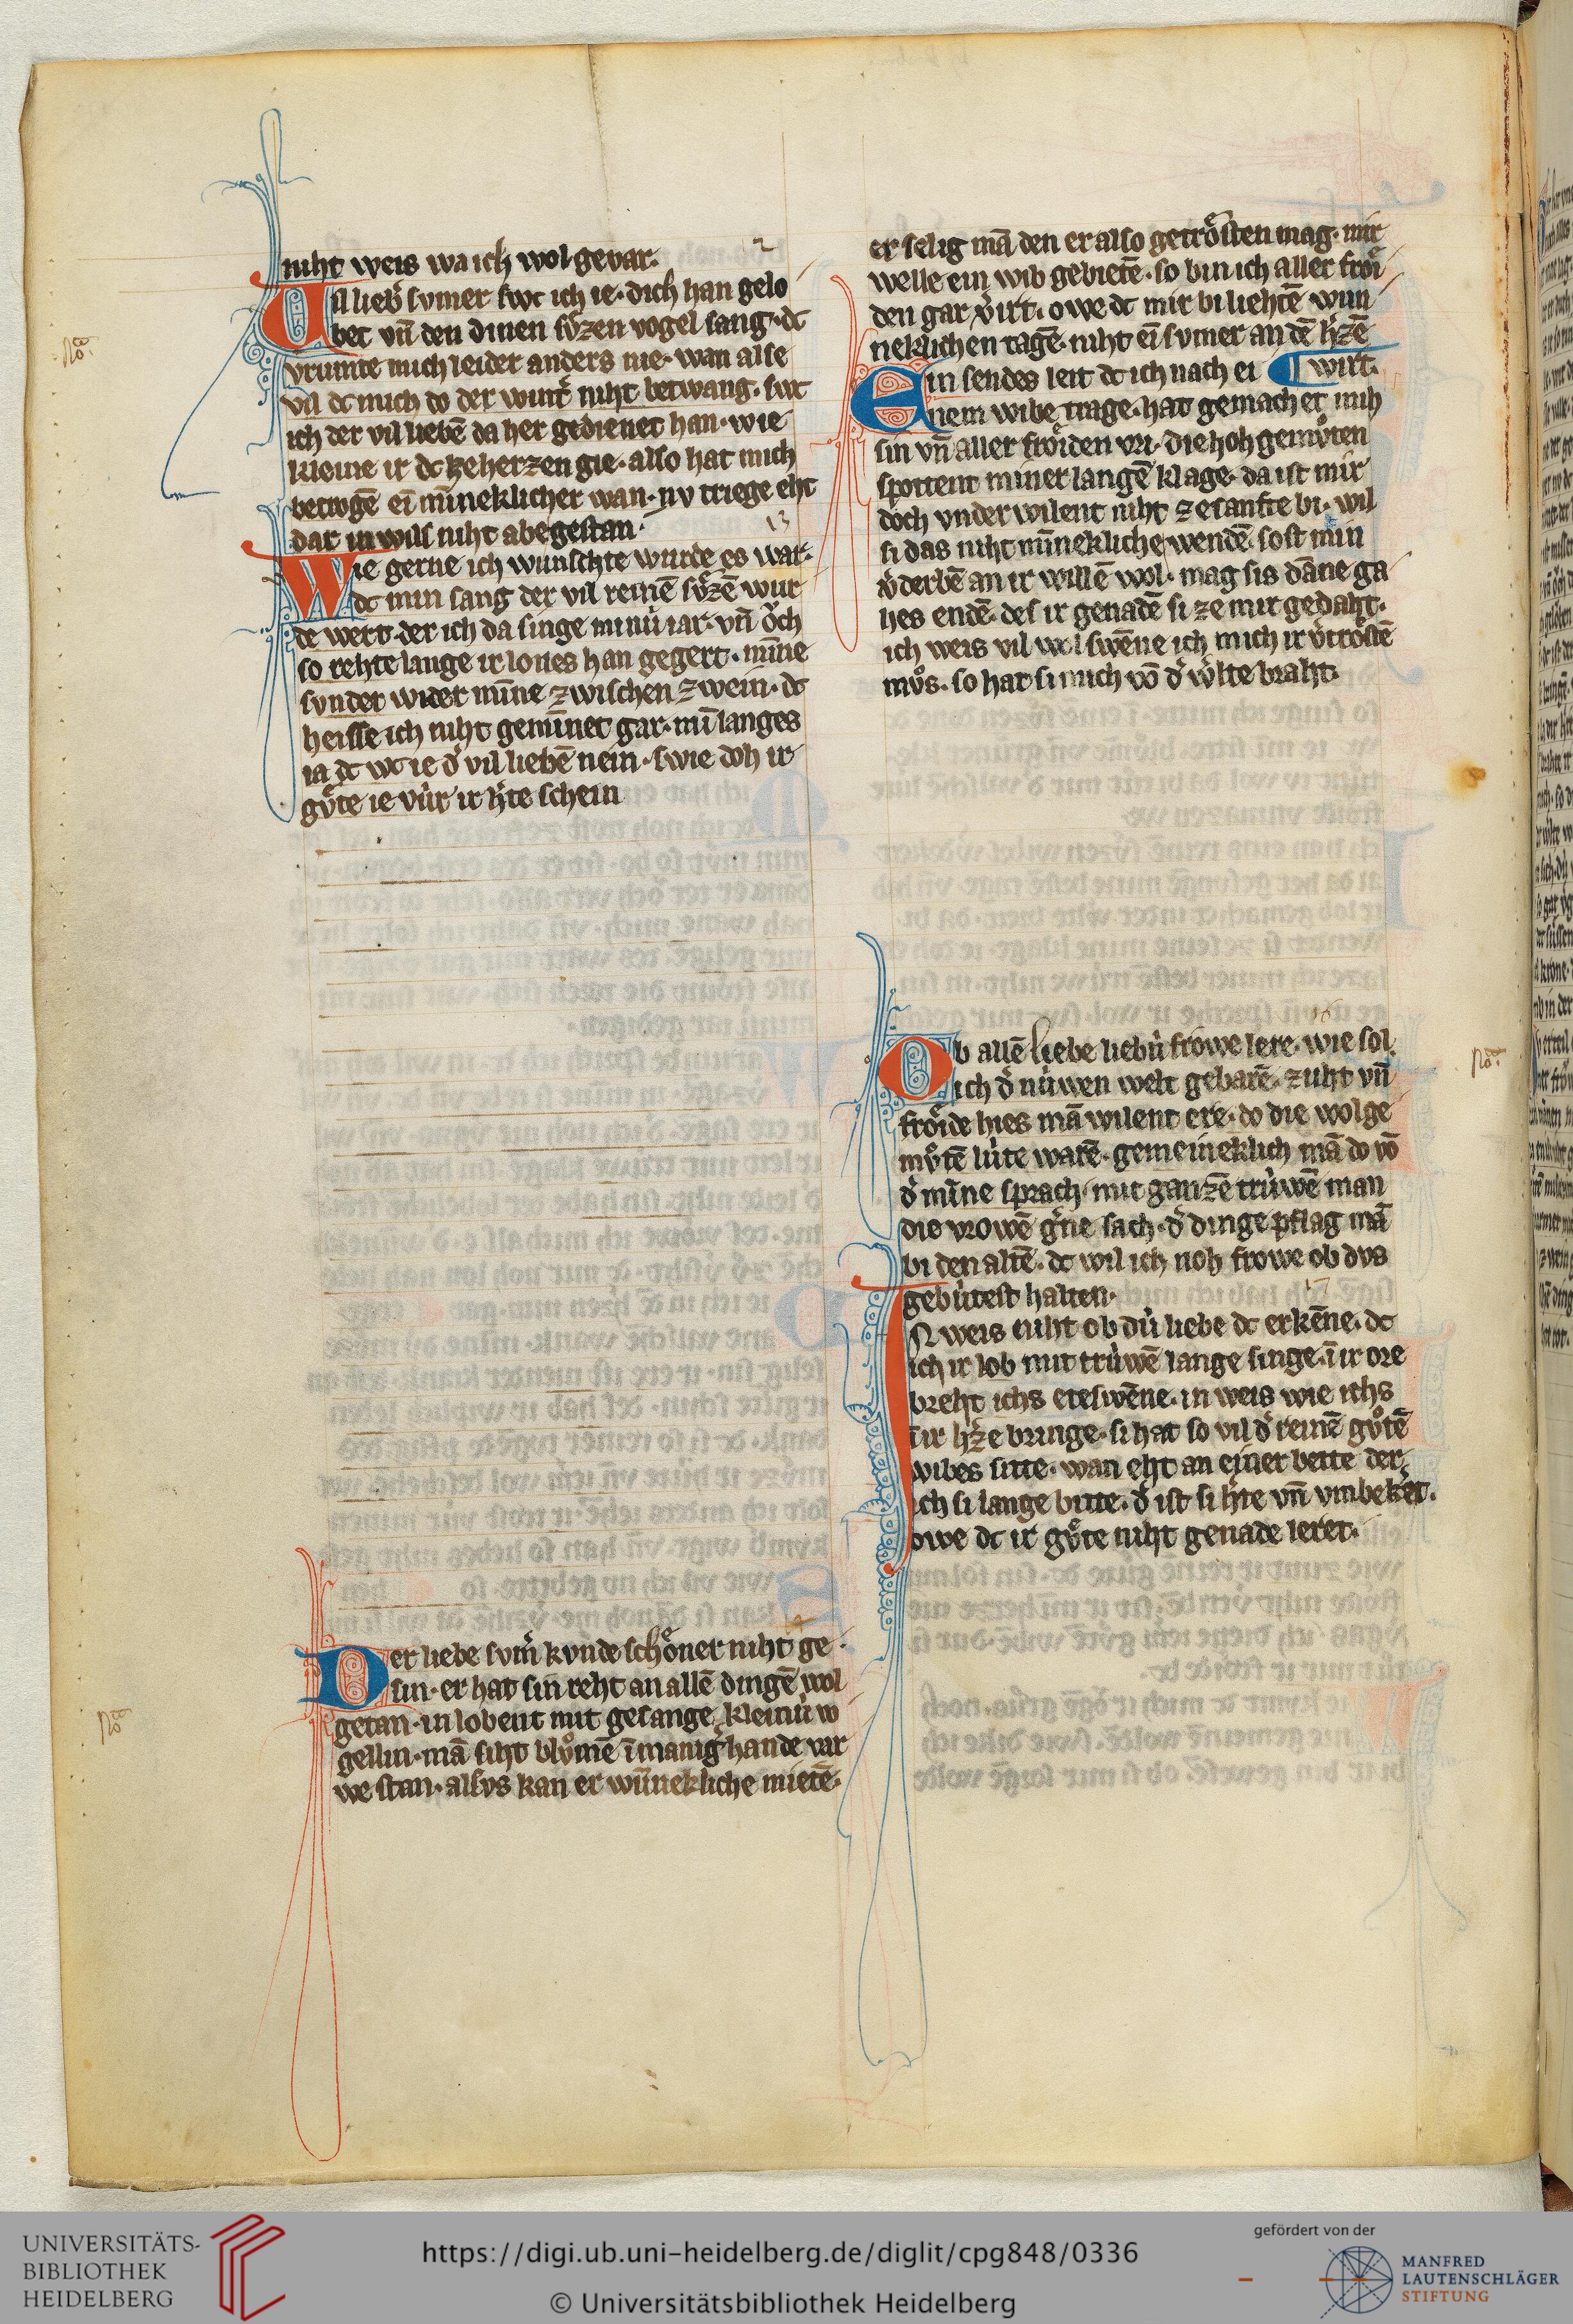 niht weis wa ich wol gevar.
Vil lieb̾ svmer swc ich ie· dich han gelo
bet vn̄ den dinen sv̊zen vogel sang· dc
vrumte mich leider anders nie· wan alse
vil dc mich do der wint̾ niht betwang· swc
ich der vil liebē da her gedienet han· wie
kleine ir dc ze herzen gie· also hat mich
betrogē ei min̄eklicher wan· nv triege eht
dar in wils niht abe gestan·
Wie gerne ich wunschte wurde es war·
dc min sang der vil reinē sv̊zē wur
de wert· der ich da singe minv̀ iar· vn̄ ǒch
so rehte lange ir lones han gegert· min̄e
svnder wider min̄e zwischen zwein· dc
heisse ich niht geminnet gar· min̄ langes
ia dc wc ie d̾ vil liebē nein· swie doh ir
gv̊te ie vùr ir h̾te schein
Der liebe svm̾ kvnde schöner niht ge
sin· er hat sin reht an allē dingē wol
getan· in lobent mit gesange kleinù vo
gellin· mā siht blv̊mē ī manig̾ hande var
we stan· alsvs kan er wn̄nekliche mietē·
er selig mā den er also getrǒsten mag· mir
welle ein wib gebietē· so bin ich aller frǒi
den gar v̾irt· owe dc mir bi liehtē wun
neklichen tagē· niht ei svmer an dē h̾zē
Ein sendes leit dc ich nach ei ¶ wirt.
nem wibe trage· hat gemachet mih
sin vn̄ aller frǒiden vri· die hoh gemv̊ten
spottent miner langē klage· da ist mir
doch vnder wilent niht ze sanfte bi· wil
si das niht min̄ekliche wendē· so ist min
v̾derbē an ir willē wol· mag sis dāne ga
hes endē· des ir genadē si ze mir gedaht·
ich weis vil wol swēne ich mich ir v̾trǒstē
mv̊s· so hat si mich vō d̾ w̾lte braht.
Ob allē liebe liebù frowe lere· wie sol
ich d̾ nùwen welt gebarē· zuht vn̄
frǒide hies mā wilent ere· do die wolge
mv̊tē lùte warē· gemeineklich mā do vō
d̾ mīne sprach· mit ganzē trùwē man
die vrowē g̾ne sach· d̾ dinge pflag mā
bi den altē· dc wil ich noh frowe ob dvs
gebùtest halten·
IN weis niht ob dù liebe dc erkēne· dc
ich ir lob mit trùwē lange singe· ī ir ore
breht ichs eteswēne· in weis wie ichs
ī ir h̾ze bringe· si hat so vil d̾ reinē gv̊tē
wibes sitte· wan eht an einer bette der
ich si lange bitte· d̾ ist si h̾te vn̄ vmbekēt·
owe dc ir gv̊te niht genade leret·
UNIVERSITÄTS-
BIBLIOTHEK
HEIDELBERG
https://digi.ub.uni-heidelberg.de/diglit/cpg848/0336
© Universitätsbibliothek Heidelberg
gefördert von der
MANFRED
LAUTENSCHLÄGER
STIFTUNG